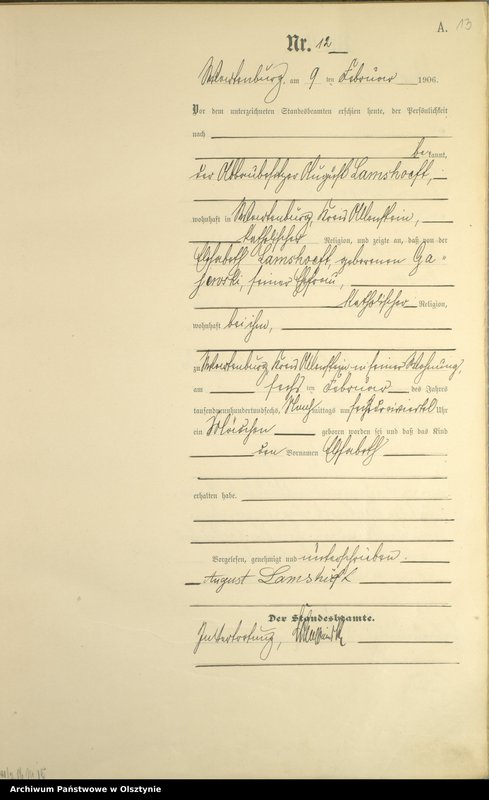 A. 13
Nr. 12
Wartenburg am 9 ten Februar 1906.
Vor dem unterzeichneten Standesbeamten erschien heute, der Persönlichkeit
nach
bekannt,
der August Lamshoeft,
wohnhaft in Wartenburg, Kreis Allenstein,
katholischer Religion, und zeigte an, daß von der
Elisabeth Lamshoeft, geborenen Ga-
jewski, seiner Ehefrau,
katholischer Religion,
wohnhaft bei ihm,
zu Wartenburg Kreis Allenstein in seiner Wohnung,
am sechs ten Februar des Jahres
tausendneunhundertundsechs, Nachmittags um Uhr
ein Mädchen geboren worden sei und daß das Kind
den Vornamen Elisabeth
erhalten habe.
Vorgelesen, genehmigt und unterschrieben.
August Lamshöft
Der Standesbeamte.
In Vertretung,
Archiwum Państwowe w Olsztynie